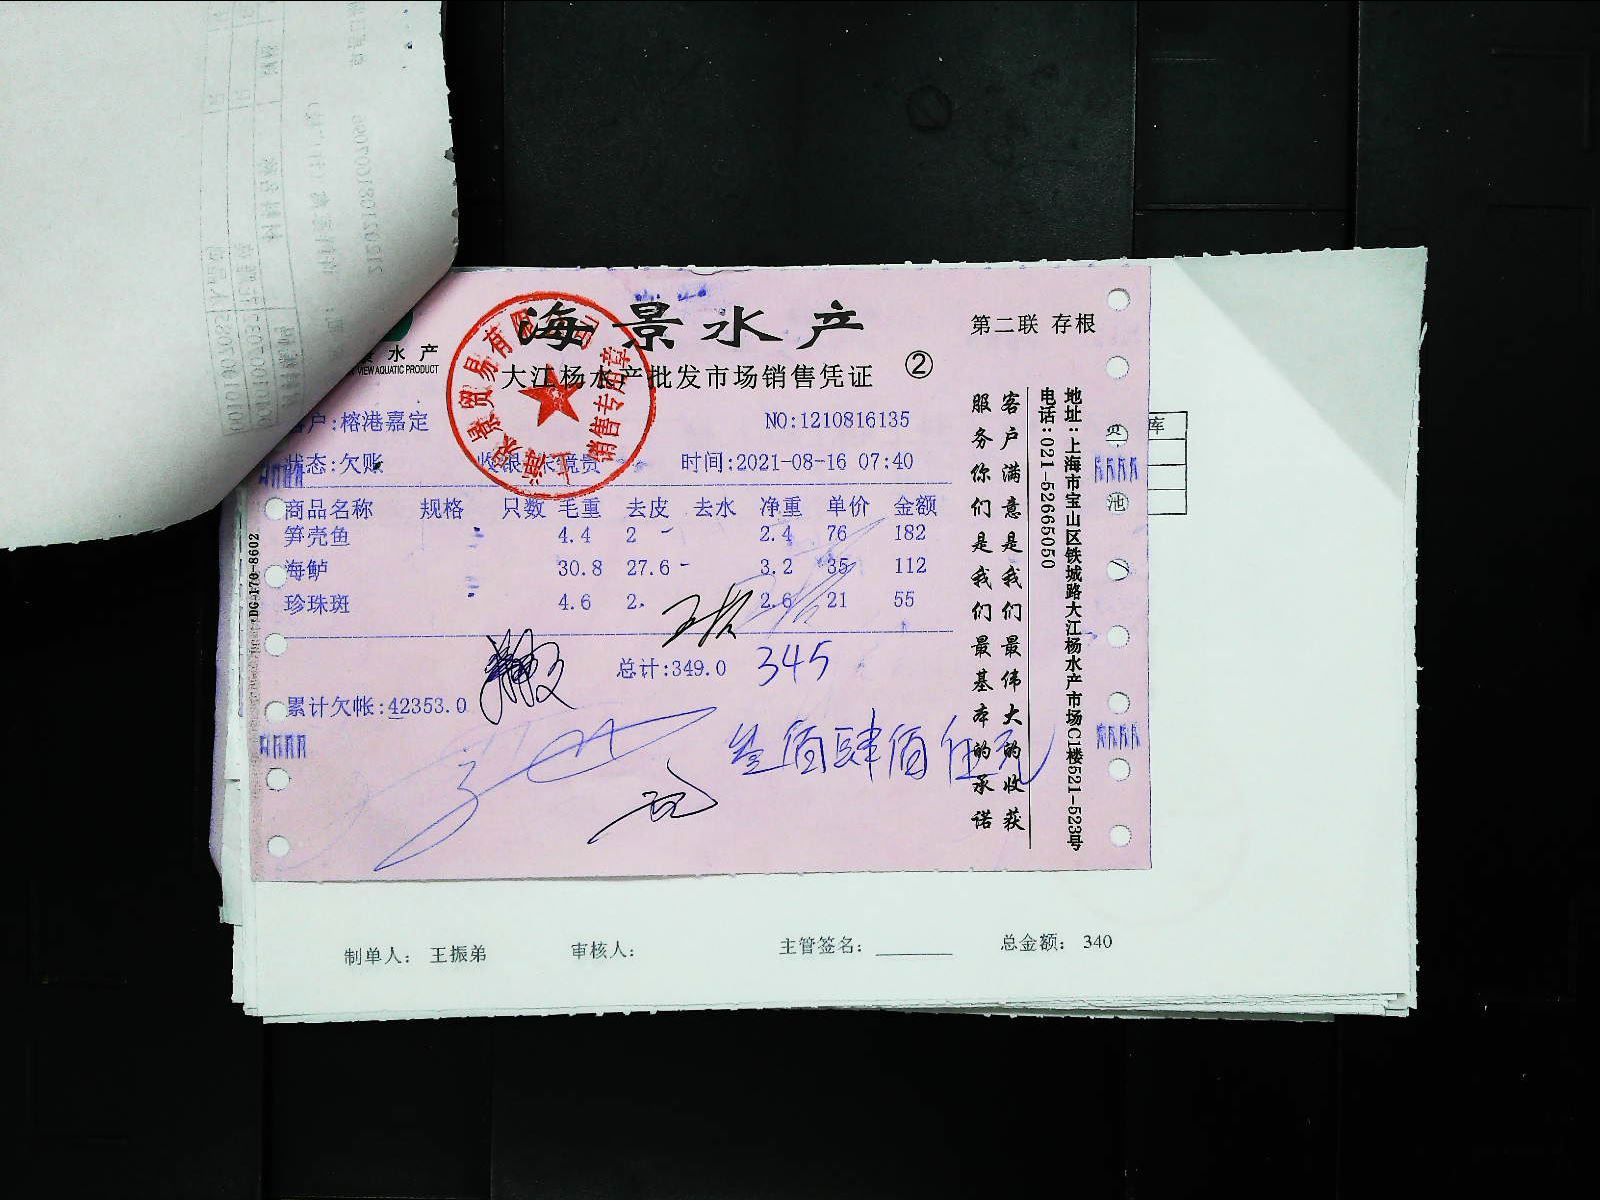 海景水产
第二联 存根
水产
VIEW AQUATIC PRODUCT
大江杨水产批发市场销售凭证 ②
户:榕港嘉定
NO:1210816135
状态:欠账
时间:2021-08-16 07:40
贸易有限
销售专用章
商品名称 规格 只数 毛重 去皮 去水 净重 单价 金额
笋壳鱼 4.4 2 2.4 76 182
海鲈 30.8 27.6 3.2 35 112
珍珠斑 4.6 2. 2.6 21 55
总计:349.0 345
累计欠帐:42353.0
客户满意是我们最伟大的收获
服务你们是我们最基本的承诺
地址:上海市宝山区铁城路大江杨水产市场C1楼521-523号
电话:021-52665050
库
池
制单人: 王振弟 审核人: 主管签名: 总金额: 340